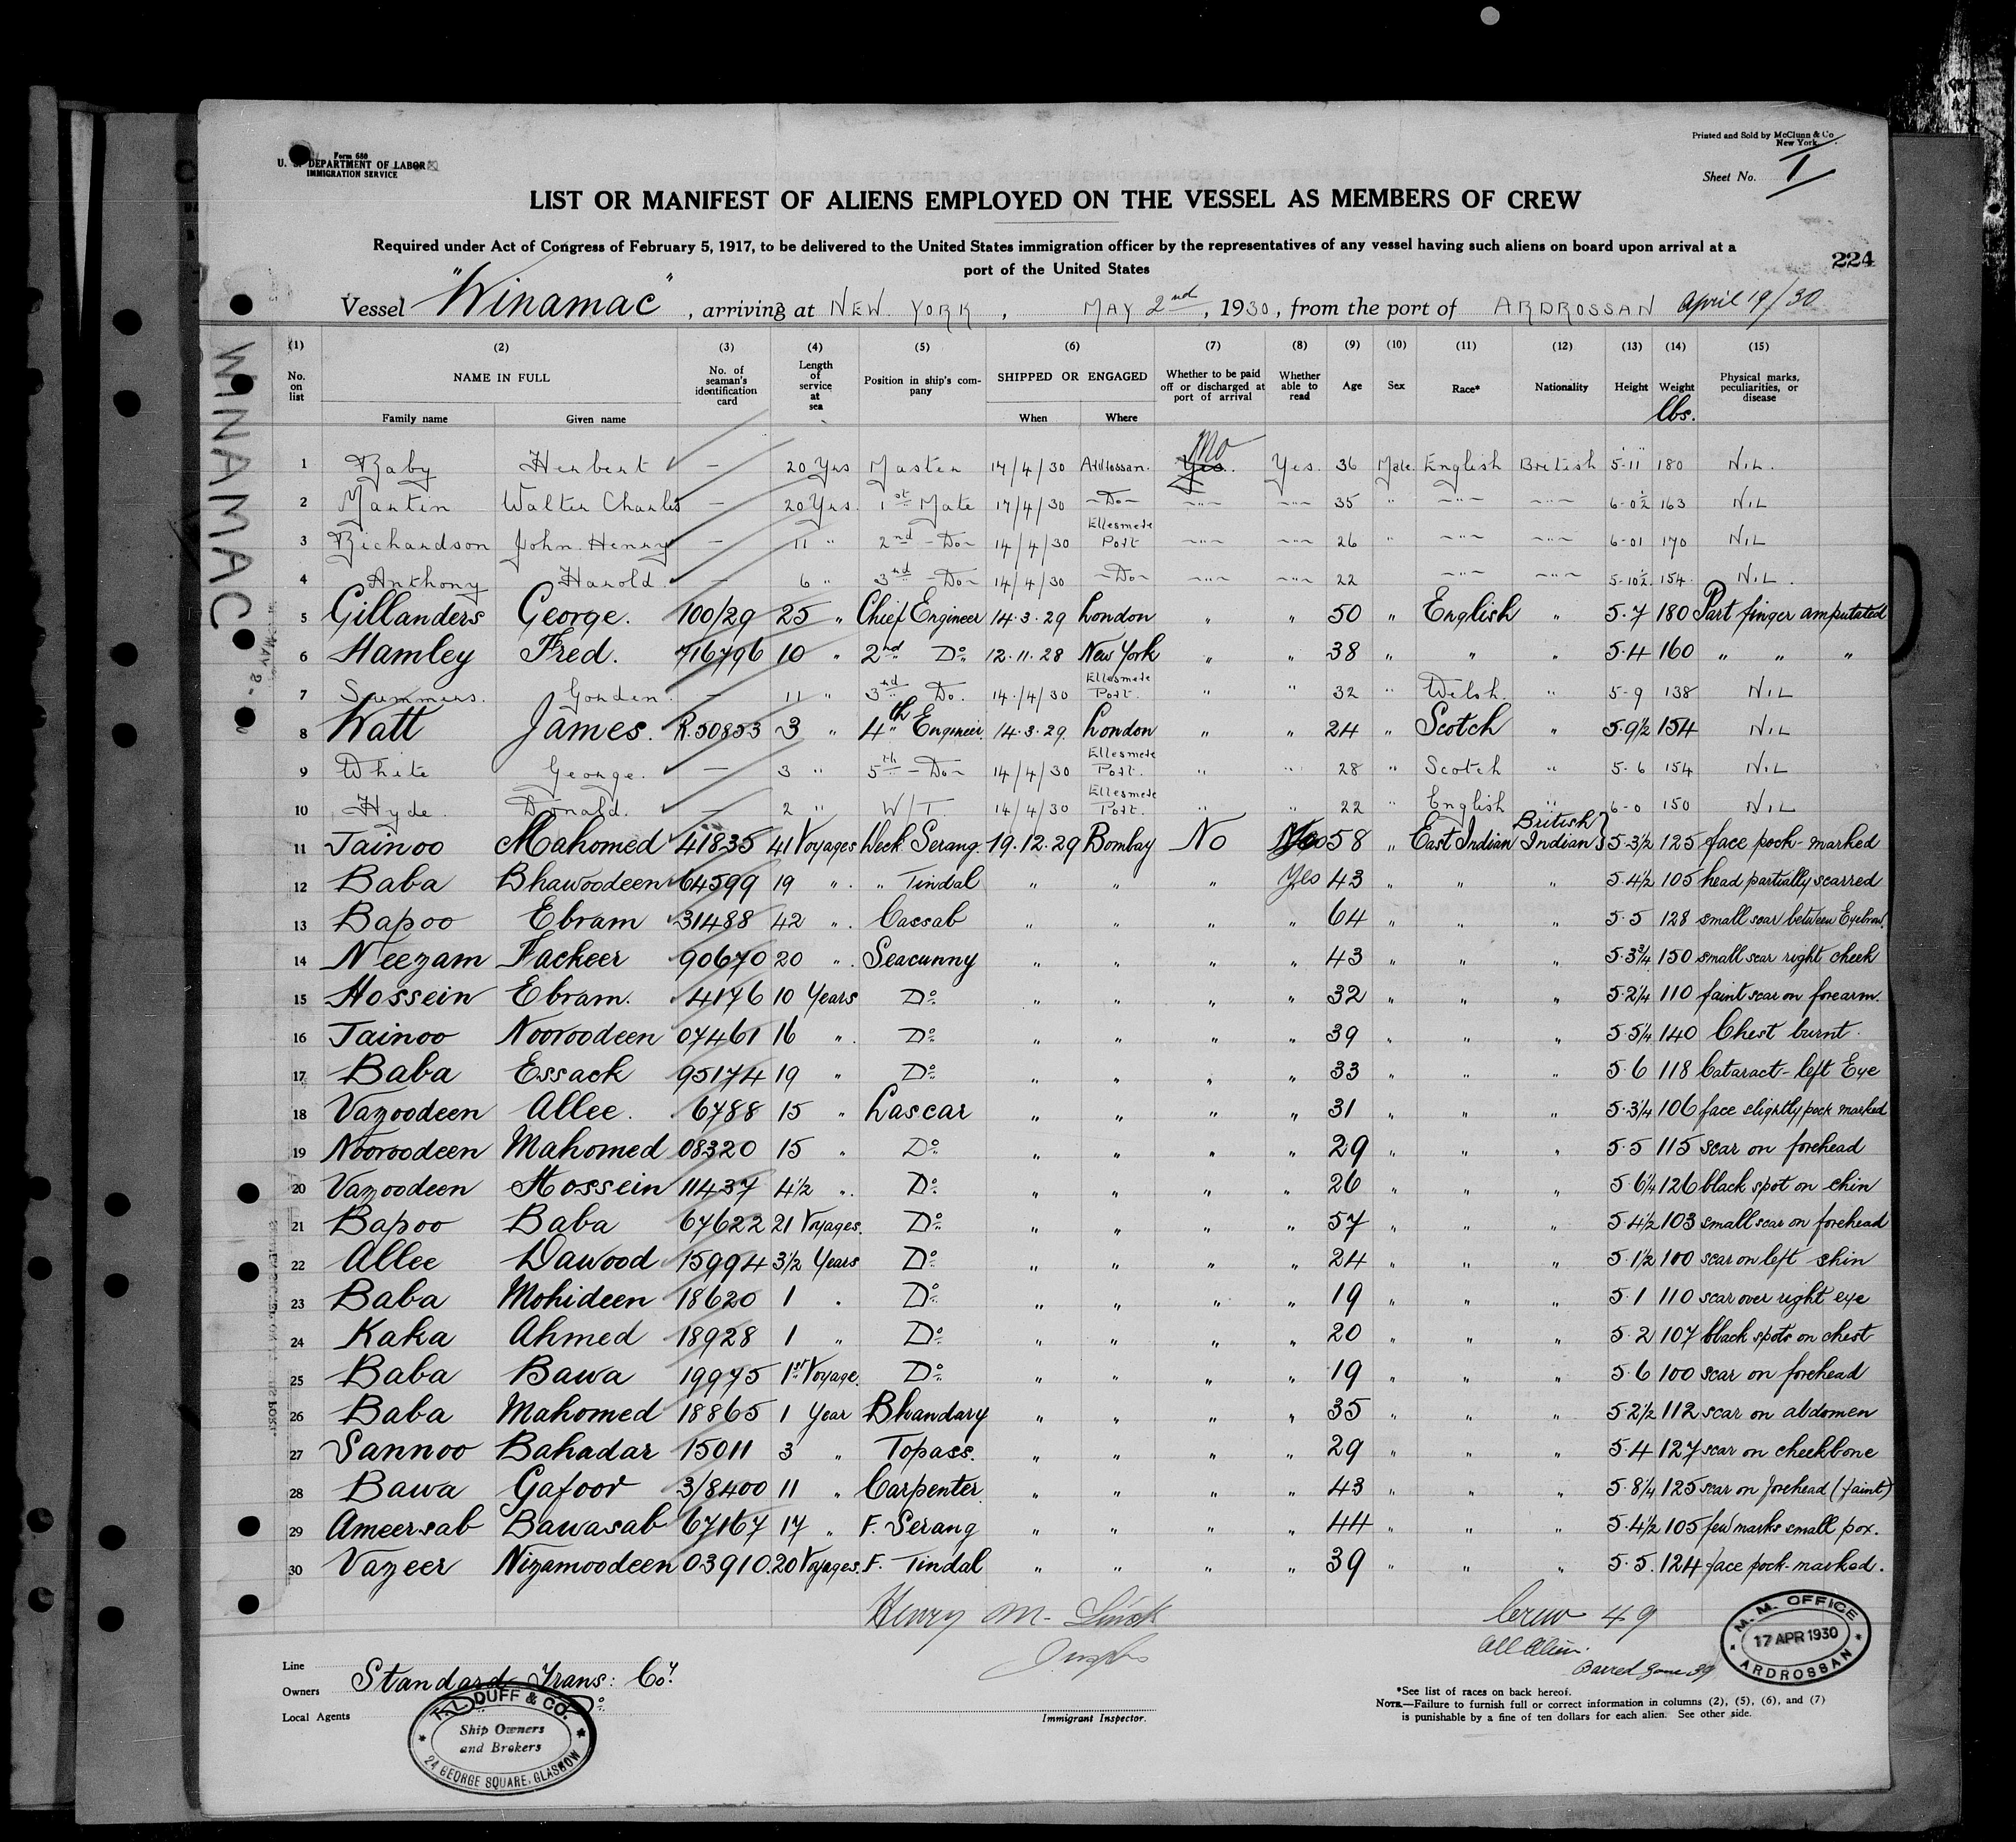 Form 680
U. S. DEPARTMENT OF LABOR
IMMIGRATION SERVICE
Printed and Sold by McClunn & Co
New York
Sheet No. 1
LIST OR MANIFEST OF ALIENS EMPLOYED ON THE VESSEL AS MEMBERS OF CREW
Required under Act of Congress of February 5, 1917, to be delivered to the United States immigration officer by the representatives of any vessel having such aliens on board upon arrival at a
port of the United States
224
Vessel "Winamac", arriving at NEW YORK, MAY 2nd, 1930, from the port of ARDROSSAN April 19/30
WINAMAC
(1) (2) (3) (4) (5) (6) (7) (8) (9) (10) (11) (12) (13) (14) (15)
No. on list NAME IN FULL No. of seaman's identification card Length of service at sea Position in ship's company SHIPPED OR ENGAGED Whether to be paid off or discharged at port of arrival Whether able to read Age Sex Race* Nationality Height Weight lbs. Physical marks, peculiarities, or disease
Family name Given name When Where
1 Raby Herbert — 20 Yrs Master 17/4/30 Ardrossan. Yes. No Yes. 36 Male. English British 5-11 180 NIL.
2 Martin Walter Charles — 20 Yrs. 1st Mate 17/4/30 -Do- -"- -"- 35 " -"- -"- 6-0½ 163 NIL
3 Richardson John Henry — 11 " 2nd -Do- 14/4/30 Ellesmere Port -"- -"- 26 " -"- -"- 6-01 170 NIL
4 Anthony Harold — 6 " 3rd -Do- 14/4/30 -Do- -"- -"- 22 -"- -"- 5-10½ 154 NIL.
5 Gillanders George. 100/29 25 " Chief Engineer 14.3.29 London " " 50 " English " 5.7 180 Part finger amputated
6 Hamley Fred. 716796 10 " 2nd Do. 12.11.28 New York " " 38 " " " 5.4 160 " " "
7 Summers. Gorden. — 11 " 3rd Do. 14/4/30 Ellesmere Port. " " 32 " Welsh. " 5-9 138 NIL
8 Watt James. R.50853 3 " 4th Engineer. 14.3.29 London " " 24 " Scotch " 5.9½ 154 NIL
9 White George. — 3 " 5th -Do- 14/4/30 Ellesmere Port. " " 28 " Scotch " 5-6 154 NIL
10 Hyde. Donald. — 2 " W/T. 14/4/30 Ellesmere Port. " " 22 " English " 6-0 150 NIL
11 Jainoo Mahomed 41835 41 Voyages Deck Serang. 19.12.29 Bombay No 58 " East Indian British Indian } 5-3½ 125 face pock-marked
12 Baba Bhawoodeen 64599 19 " " Tindal " " " Yes 43 " " " 5.4½ 105 head partially scarred
13 Bapoo Ebram 31488 42 " Cassab " " " " 64 " " " 5.5 128 small scar between Eyebrow.
14 Neezam Fackeer 90670 20 " Seacunny " " " " 43 " " " 5.3¾ 150 small scar right cheek
15 Hossein Ebram. 4176 10 Years Do. " " " " 32 " " " 5.2¼ 110 faint scar on forearm.
16 Jainoo Nooroodeen 07461 16 " Do. " " " " 39 " " " 5.5¼ 140 Chest burnt.
17 Baba Essack 95174 19 " Do. " " " " 33 " " " 5.6 118 Cataract-left Eye
18 Vazoodeen Allee. 6788 15 " Lascar " " " " 31 " " " 5.3¼ 106 face slightly pock marked
19 Nooroodeen Mahomed 08320 15 " Do. " " " " 29 " " " 5.5 115 scar on forehead
20 Vazoodeen Hossein 11437 4½ " Do. " " " " 26 " " " 5.6¼ 126 black spot on chin
21 Bapoo Baba 67622 21 Voyages. Do. " " " " 57 " " " 5.4½ 103 small scar on forehead
22 Allee Dawood 15994 3½ Years Do. " " " " 24 " " " 5.1½ 100 scar on left shin
23 Baba Mohideen 18620 1 " Do. " " " " 19 " " " 5.1 110 scar over right eye
24 Kaka Ahmed 18928 1 " Do. " " " " 20 " " " 5.2 107 black spots on chest
25 Baba Bawa 19975 1st Voyage. Do. " " " " 19 " " " 5.6 100 scar on forehead
26 Baba Mahomed 18865 1 Year Bhandary " " " " 35 " " " 5.2½ 112 scar on abdomen
27 Sannoo Bahadar 15011 3 " Topass. " " " " 29 " " " 5.4 127 scar on cheekbone
28 Bawa Gafoor 3/8400 11 " Carpenter. " " " " 43 " " " 5.8¼ 125 scar on forehead (faint)
29 Ameersab Bawasab 67167 17 " F. Serang " " " " 44 " " " 5.4½ 105 few marks small pox.
30 Vazeer Nizamoodeen 03910. 20 Voyages. F. Tindal " " " " 39 " " " 5.5. 124 face pock-marked.
Henry M.
Crew 49
All Alien
Barred Zone 39
M. M. OFFICE
17 APR 1930
ARDROSSAN
Line
Owners Standard Trans: Coy.
Local Agents Do.
T. L. DUFF & CO.
Ship Owners
and Brokers
24 GEORGE SQUARE, GLASGOW
Immigrant Inspector.
*See list of races on back hereof.
NOTE.—Failure to furnish full or correct information in columns (2), (5), (6), and (7)
is punishable by a fine of ten dollars for each alien. See other side.